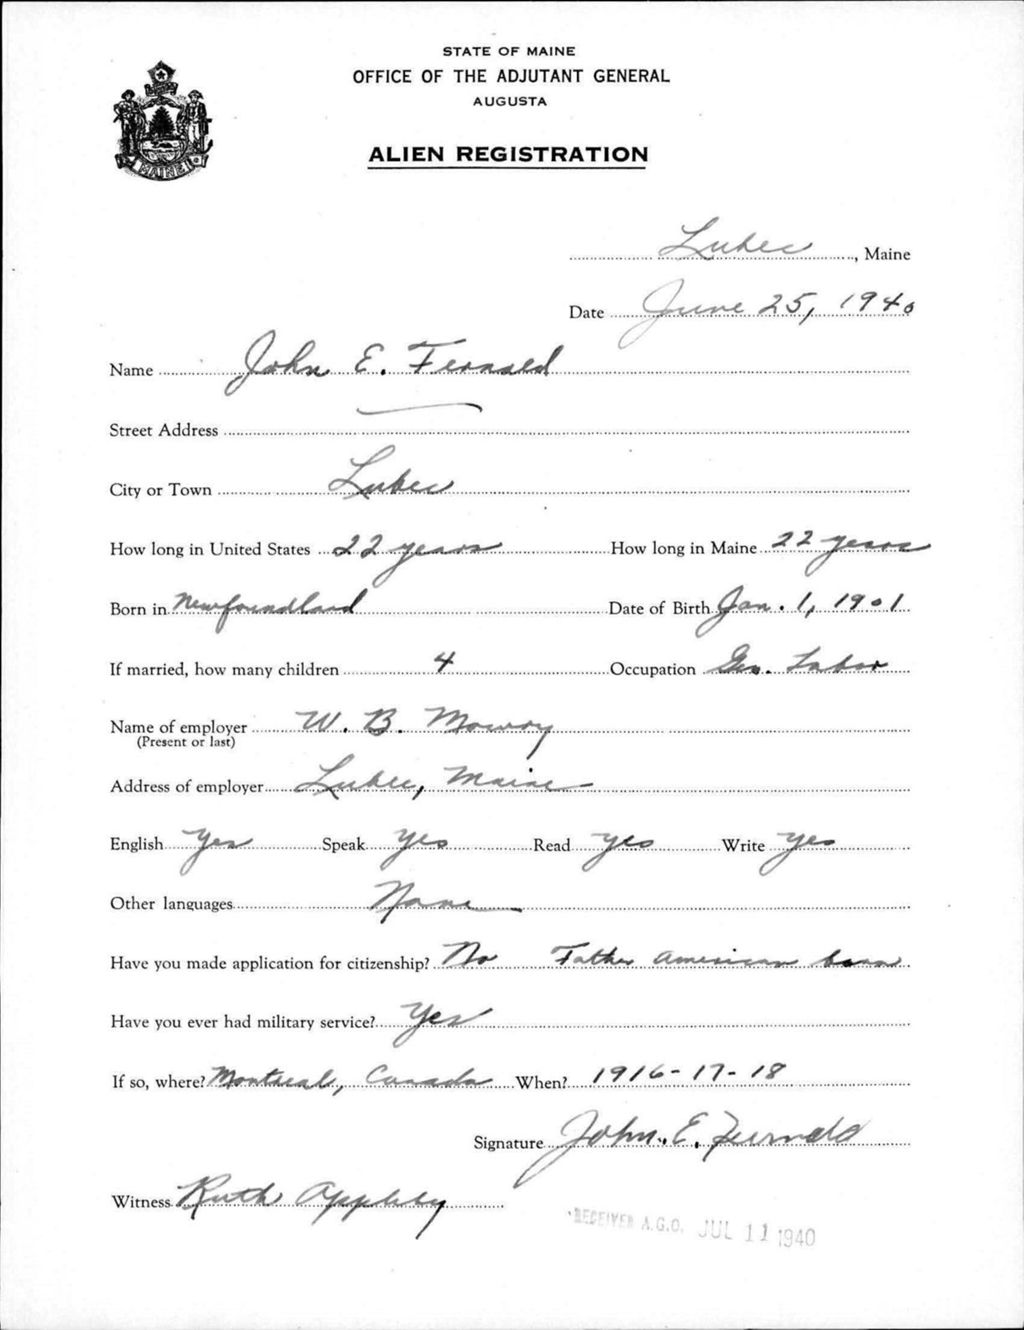 STATE OF MAINE
OFFICE OF THE ADJUTANT GENERAL
AUGUSTA
ALIEN REGISTRATION
MAINE
Lubec, Maine
Date June 25, 1940
Name John E. Fernald
Street Address
City or Town Lubec
How long in United States 22 years How long in Maine 22 years
Born in Newfoundland Date of Birth Jan. 1, 1901
If married, how many children 4 Occupation Gen. Labor
Name of employer W. B. Mowry
(Present or last)
Address of employer Lubec, Maine
English Yes Speak Yes Read Yes Write Yes
Other languages None
Have you made application for citizenship? No Father American born
Have you ever had military service? Yes
If so, where? Montreal, Canada When? 1916-17-18
Signature John. E. Fernald
Witness Ruth Appleby
RECEIVED A.G.O. JUL 11 1940